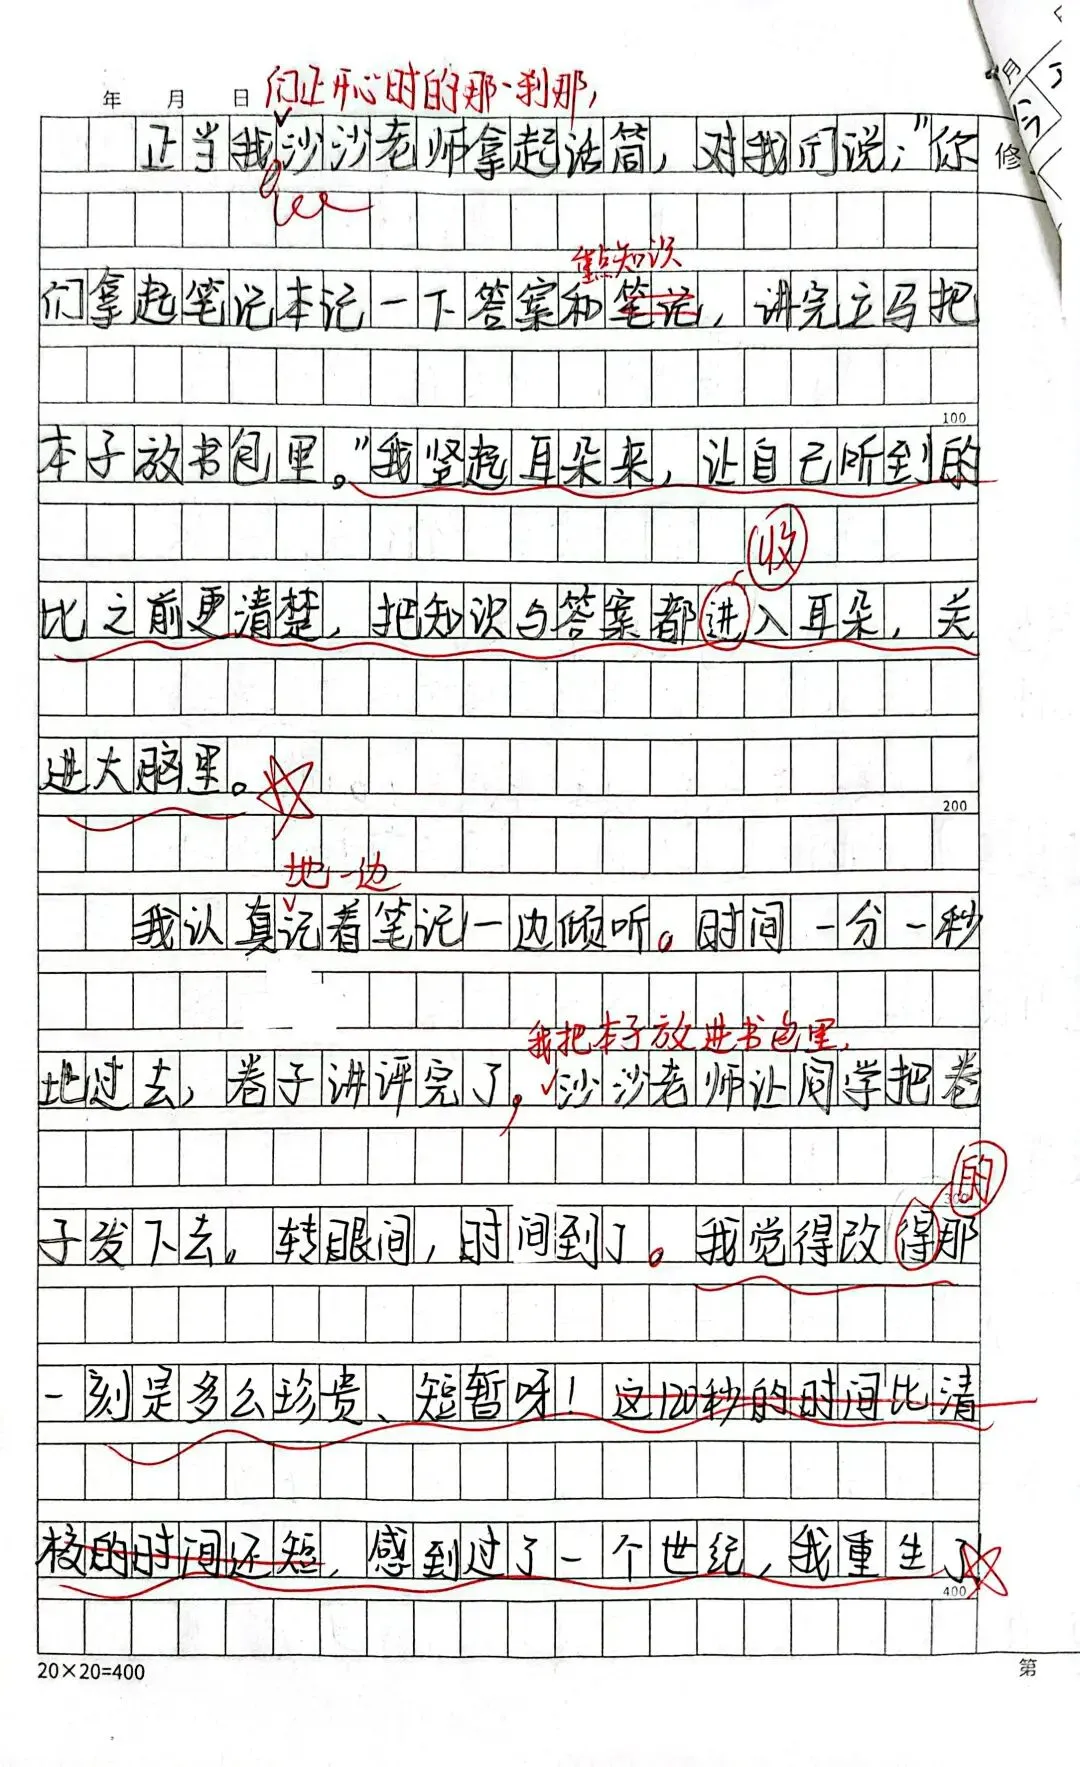 年 月 日 们正开心时的那一刹那,
正当我沙沙老师拿起话筒,对我们说:"你
修
重点知识
们拿起笔记本记一下答案和笔记,讲完立马把
100
本子放书包里。"我竖起耳朵来,让自己听到的
收
比之前更清楚,把知识与答案都进入耳朵,关
进大脑里。
200
地一边
我认真记着笔记一边倾听。时间一分一秒
我把本子放进书包里,
地过去,卷子讲评完了,沙沙老师让同学把卷
的
300
子发下去。转眼间,时间到了。我觉得改得那
一刻是多么珍贵、短暂呀!这120秒的时间比清
楼的时间还短,感到过了一个世纪,我重生了
400
20×20=400
第